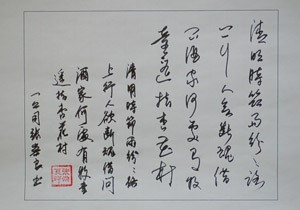 清明時節雨紛〻路
上行人欲斷魂借
問酒家何處有牧
童遙指杏花村
清明時節雨紛〻路
上行人欲斷魂借問
酒家何處有牧童
遙指杏花村